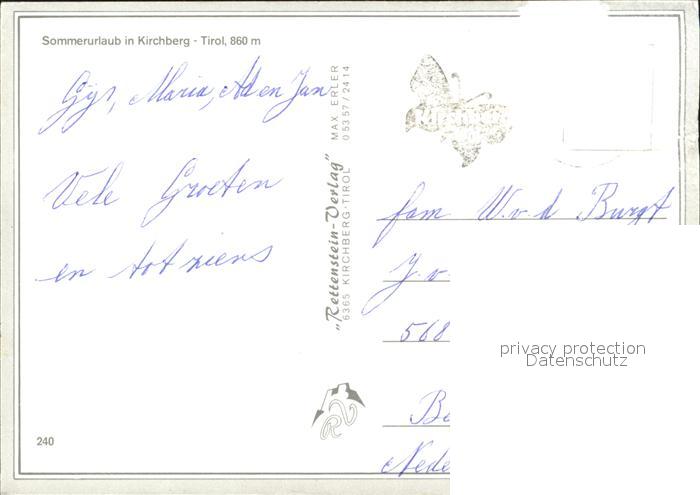 Sommerurlaub in Kirchberg - Tirol, 860 m
Gijs, Maria, Ad en Jan
Vele Groeten
en tot ziens
240
"Rettenstein-Verlag"
6365 KIRCHBERG-TIROL
MAX. ERLER
05357/2414
RV
fam W.v.d Burgt
J.v.
568
Be
Nede
privacy protection
Datenschutz